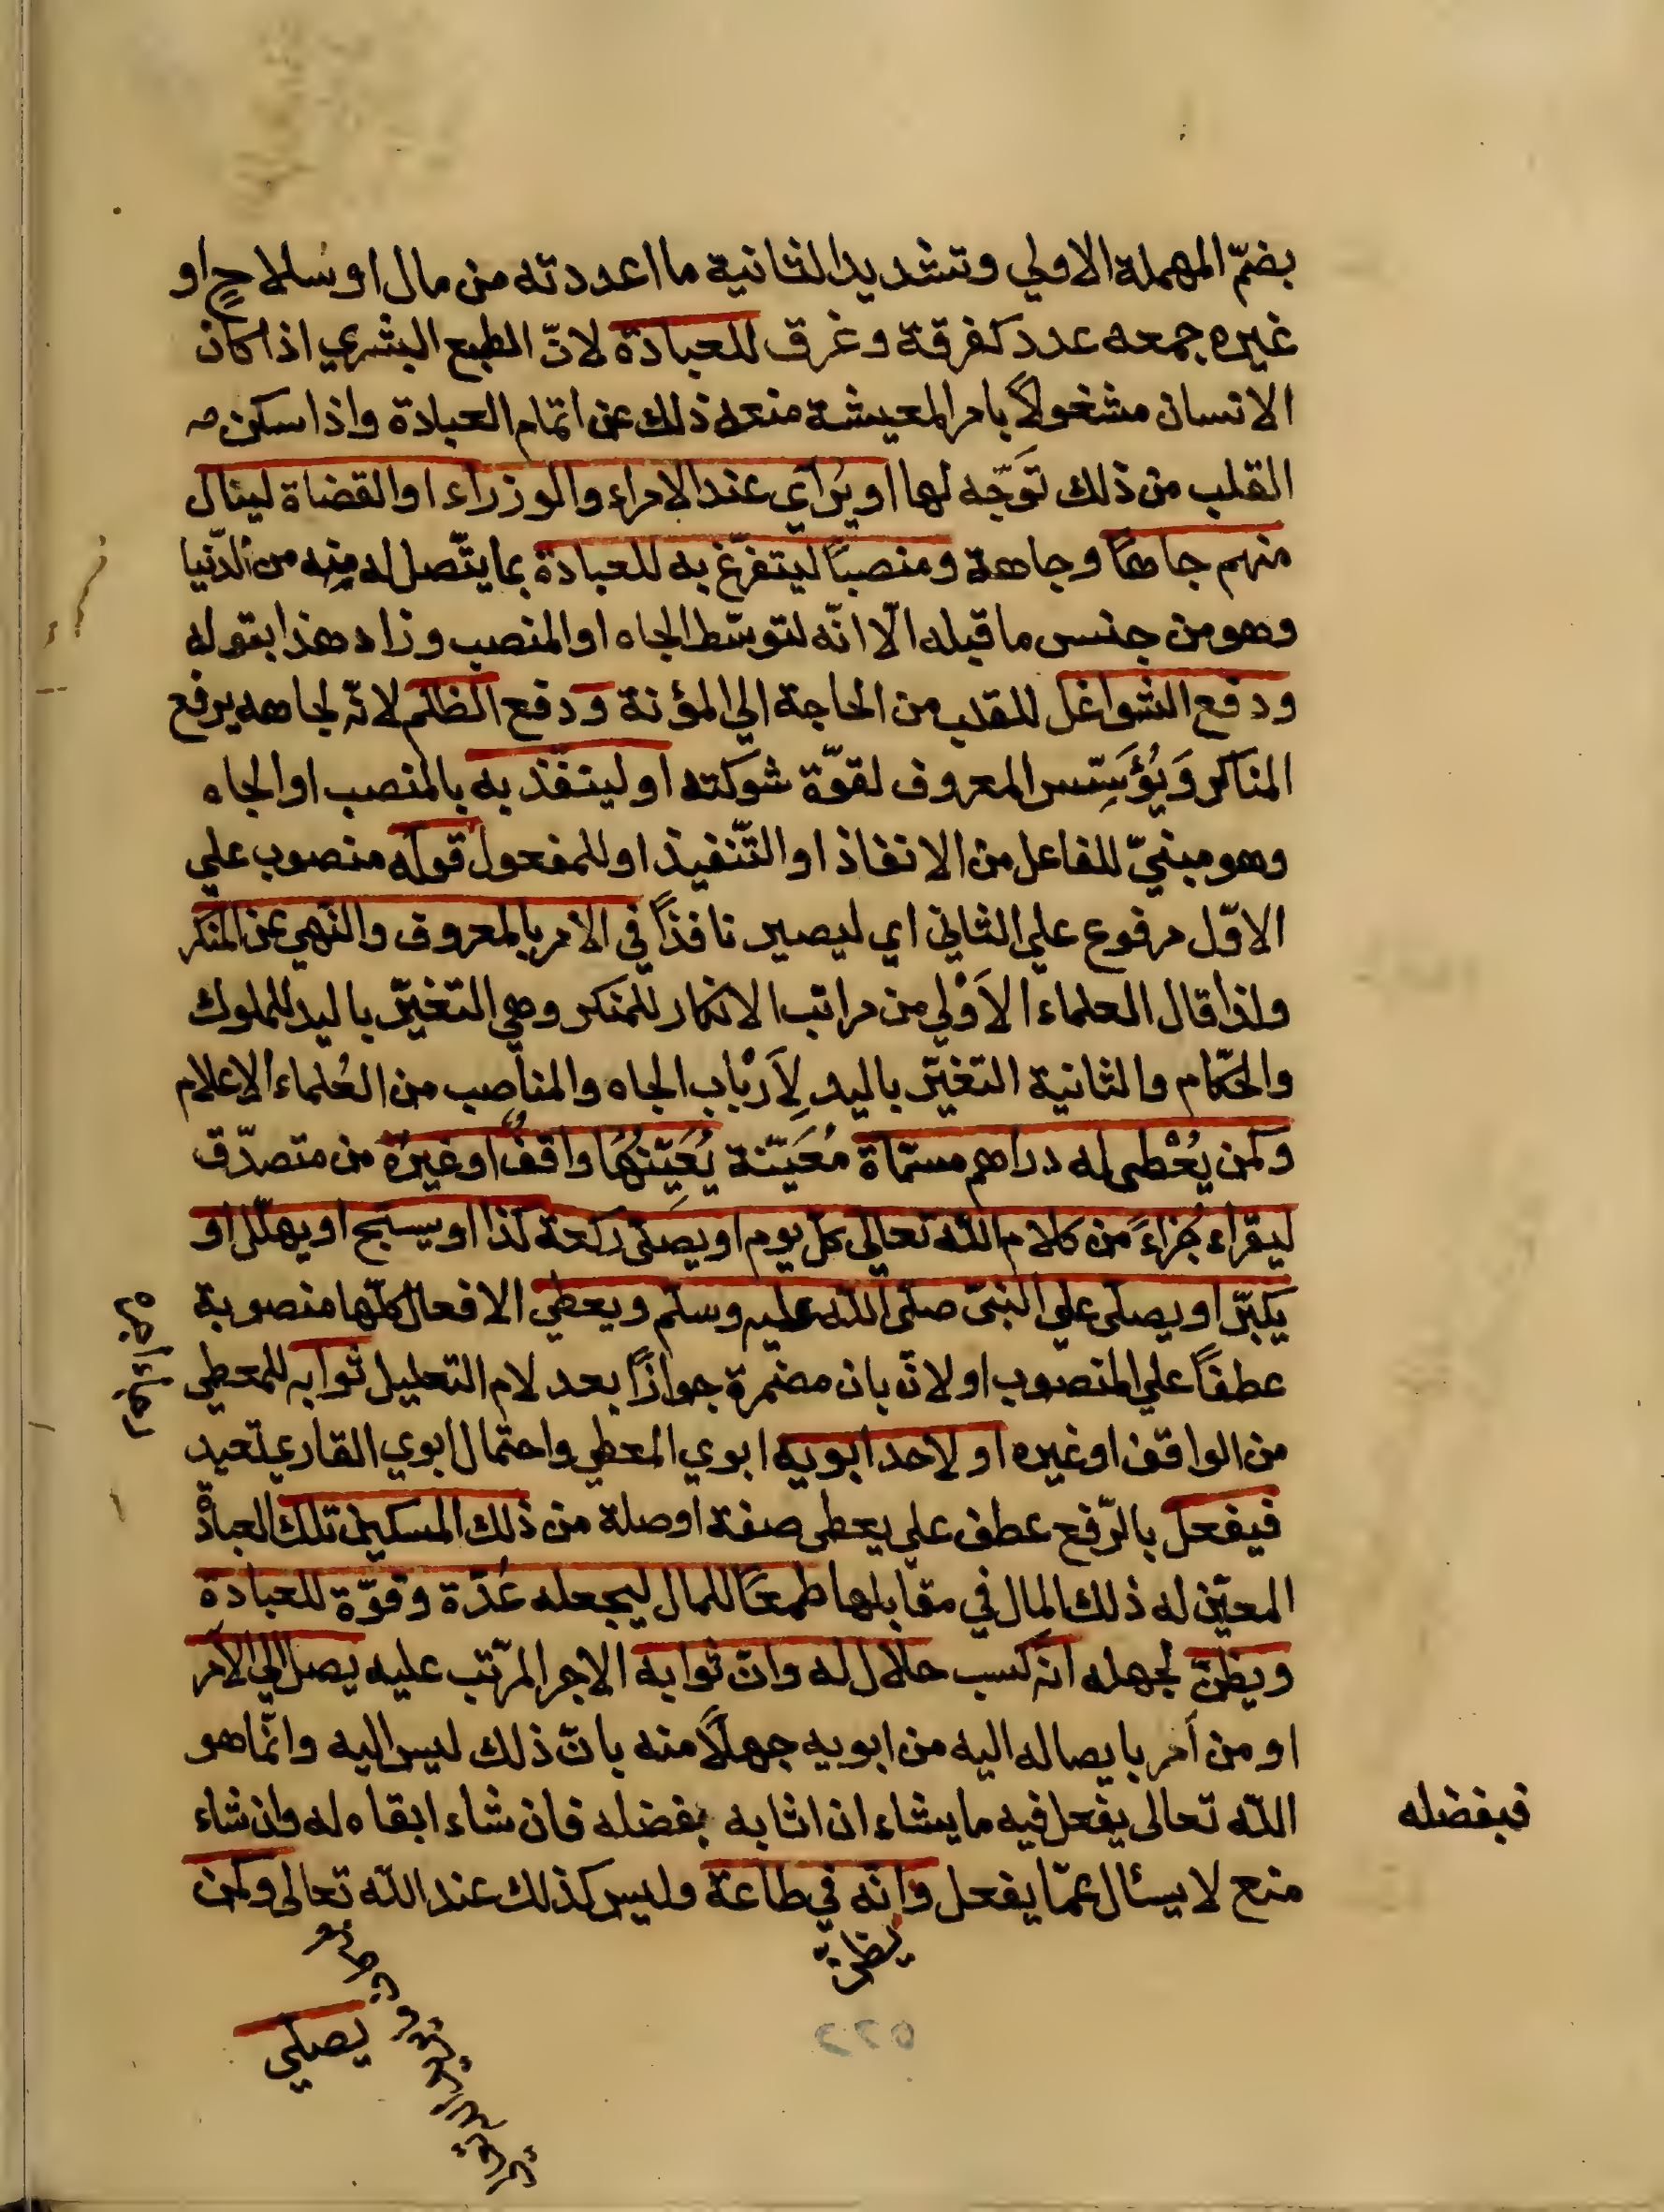 بضمّ المهملة الاولي وتشديد الثانية ما اعددته من مال او سلاحٍ او
غيره جمعه عدد كغرفة وغرق للعبادة لانّ الطبع البشري اذا كان
الانسان مشغولاً بامر المعيشة منعه ذلك عن اتمام العبادة واذا سكن
القلب من ذلك تَوَجّه لها او يُرآي عند الامراء والوزراء او القضاة لينال
منهم جاهًا وجاهة ومنصبًا ليتفرّغ به للعبادة بما يتّصل له مِنه من الدّنيا
وهو من جنس ما قبله الّا انّه لتوسّط الجاه او المنصب وزاد هذا بقوله
ودفع الشواغل للقلب من الحاجة الي المؤنة ودفع الظلم لانّه لجاهه يرفع
المناكر وَيُؤَسِّس المعروف لقوّة شوكته او لينفّذ به بالمنصب او الجاه
وهو مبنيّ للفاعل من الانفاذ او التّنفيذ او للمفعول قوله منصوب علي
الاوّل مرفوع علي الثاني اي ليصير نافذًا في الامر بالمعروف والنّهي عن المنكر
ولذا قال العلماء الاَوْلي من مراتب الانكار للمنكر وهي التغيّر باليد للملوك
والحّكام والثانية التغيّر باليد لِاَرْباب الجاه والمناصب من العُلماء الاعلام
وكمن يُعْطى له دراهم مسمّاة مُعَيّنة يُعَيِّنُهَا واقفٌ او غيرُه من متصدّق
ليقراء جُزاءً من كلام اللّه تعالى كل يوم او يصلّى ركعة كذا او يسبّح او يهلّل او
يكبّر او يصلى علي النبىّ صلّى اللّه عليه وسلّم ويعطي الافعال كلّها منصوبة
عطفًا علي المنصوب اولا نّ بان مضمرة جوازًا بعد لام التعليل ثوابه للمعطي
من الواقف او غيره او لاحد ابويه ابوي المعطي واحتمال ابوي القاري بعيد
فيفعل بالرّفع عطف علي يعطى صفة او صلة من ذلك المسكين تلك العبادة
المعيّن له ذلك المال في مقابلها طمعًا للمال ليجعله عُدّة وقوّة للعبادة
ويظنّ لجهله انّه كسب حلال له وانّ ثوابه الاجر المرّتب عليه يصل الي الآمر
او من اَمر بايصاله اليه من ابويه جهلًا منه بانّ ذلك ليس اليه وانّما هو
اللّه تعالى يفعل فيه ما يشاء ان اثابه بفضله فان شاء ابقاه له وان شاء
فبفضله
منع لا يسئال عمّا يفعل وانّه في طاعة وليس كذلك عند اللّه تعالى وكمن
يظنّ
يصلي